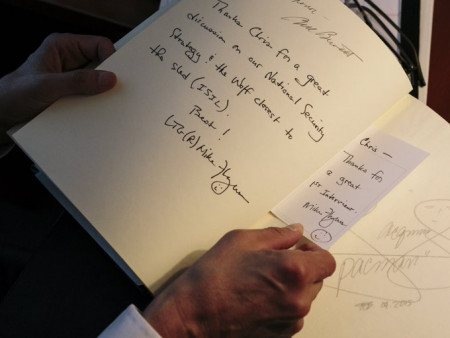 Thanks Chris for a great
discussion on our National Security
Strategy & the Wolf closest to
the sled (ISIL).
LTG(R) Mike Flynn
Chris —
Thanks for
a great
Interview
Mike Flynn
"pacman"